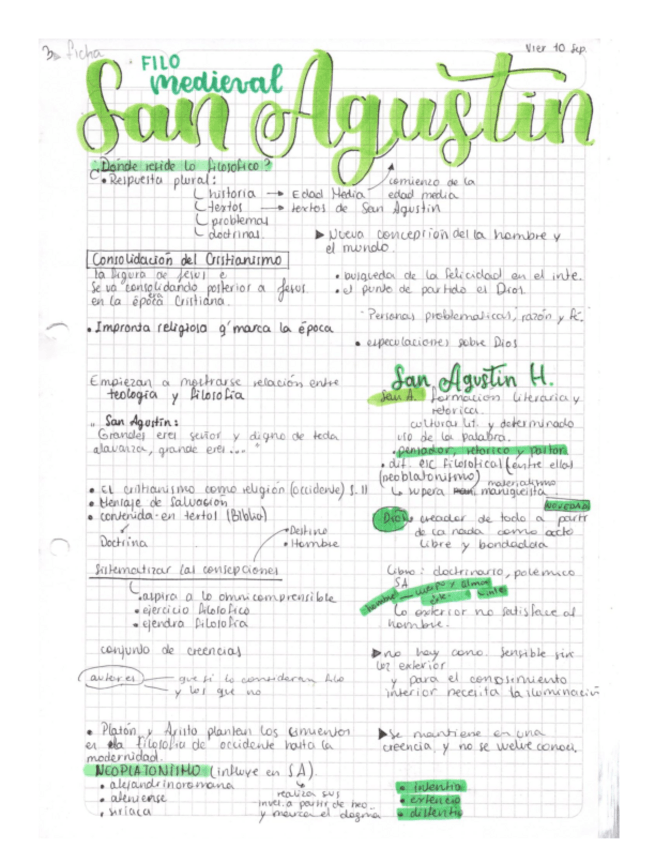 3 ficha
Vier 10 Sep.
FILO
medieval
San Agustin
¿Donde reside lo filosofico?
• Respuesta plural:
historia → Edad Media
textos → textos de San Agustin
problemas
doctrinas
comienzo de la
edad media
▶ Nueva concepcion del la hombre y
el mundo.
Consolidación del Cristianismo
la figura de Jesus e
se va consolidando posterior a Jesus.
en la época Cristiana.
• Impronta religiosa q' marca la época
• busqueda de la felicidad en el inte.
• el punto de partida el Dios.
Personas problematicas, razón y fé.
• especulaciones sobre Dios
Empiezan a mostrarse relación entre
teologia y filosofia
San Agustin:
Grandes eres señor y digno de toda
alavanza, grande eres... "
• El cristianismo como religion (occidente) S. II
• Mensaje de Salvación
• contenida en textos (Biblia)
Doctrina
• Destino
• Hombre
Sistematizar las consepciones
aspira a lo omnicomprensible
• ejercicio filosofico
• ejendra filosofia
conjunto de creencias
autores
que si lo consideran filo
y los que no
• Platón y Aristo plantan los cimientos
en la filosofia de occidente hasta la
modernidad.
NEOPLATONISMO (influye en SA).
• alejandrinoromana
• ateniense
• siriaca
realiza sus
invest. a partir de neo_
y marca el dogma
San Agustin H.
San A. formacion literaria y
retorica.
culturas lit. y determinado
uso de la palabra.
• pensador, retorico y pastor
• dif. esc filosofical (entre ellas
(neoblatonismo) materialismo
supera maniqueista
NOVEDAD
Dios creador de todo a partir
de la nada como acto
libre y bondadda
Libro: doctrinario, polemico
SA
hombre cuerpo y alma
exte. inte
Lo exterior no satisface al
hombre.
▶ no hay cono. sensible sin
luz exterior
y para el conosimiento
interior necesita la iluminación
▶ Se mantiene en una
creencia y no se vuelve conoci.
• intentio
• extencio
• distentio